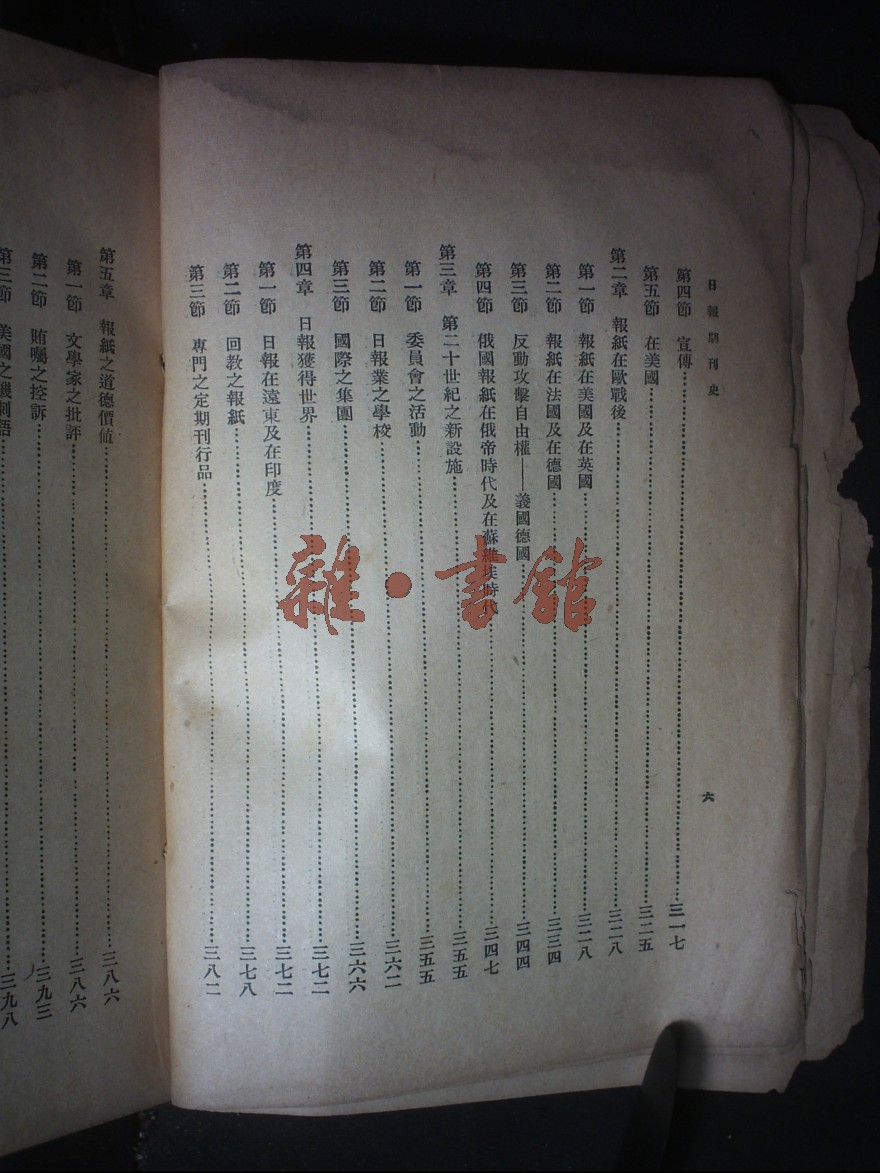 日報期刊史
六
第四節 宣傳……三一七
第五節 在美國……三二五
第二章 報紙在歐戰後……三二八
第一節 報紙在美國及在英國……三二八
第二節 報紙在法國及在德國……三三四
第三節 反動攻擊自由權——義國德國……三四四
第四節 俄國報紙在俄帝時代及在蘇維埃時代……三四七
第三章 第二十世紀之新設施……三五五
第一節 委員會之活動……三五五
第二節 日報業之學校……三六二
第三節 國際之集團……三六六
第四章 日報獲得世界……三七二
第一節 日報在遠東及在印度……三七二
第二節 回教之報紙……三七八
第三節 專門之定期刊行品……三八二
第五章 報紙之道德價值……三八六
第一節 文學家之批評……三八六
第二節 賄囑之控訴……三九三
第三節 美國之譏刺語……三九八
雜·書館